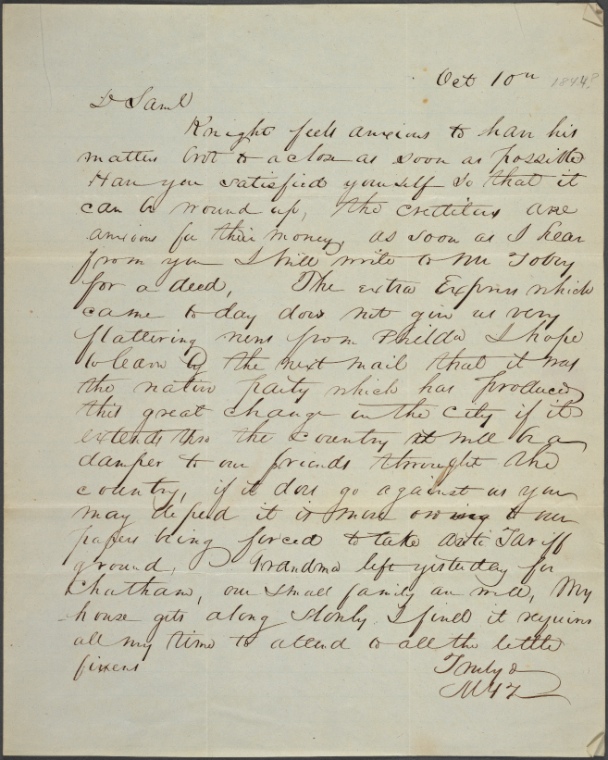 Oct 10th 1844?
Dr Saml
Knight feels anxious to have his
matter brot to a close as soon as possible
Have you satisfied yourself so that it
can be wound up, the creditors are
anxious for their money, as soon as I hear
from you I will write to Mr Tobey
for a deed, The extra Express which
came to day does not give us very
flattering news from Philda I hope
to learn by the next mail that it was
the native party which has produced
this great change in the city if it
extends thro the country it will be a
damper to our friends throught the
country, if it does go against us you
may depend it is more owing to our
papers being forced to take anti Tariff
ground, Grandma left yesterday for
Chatham, our small family are well, My
house gets along slowly I find it requires
all my time to attend to all the little
fixens
Truly